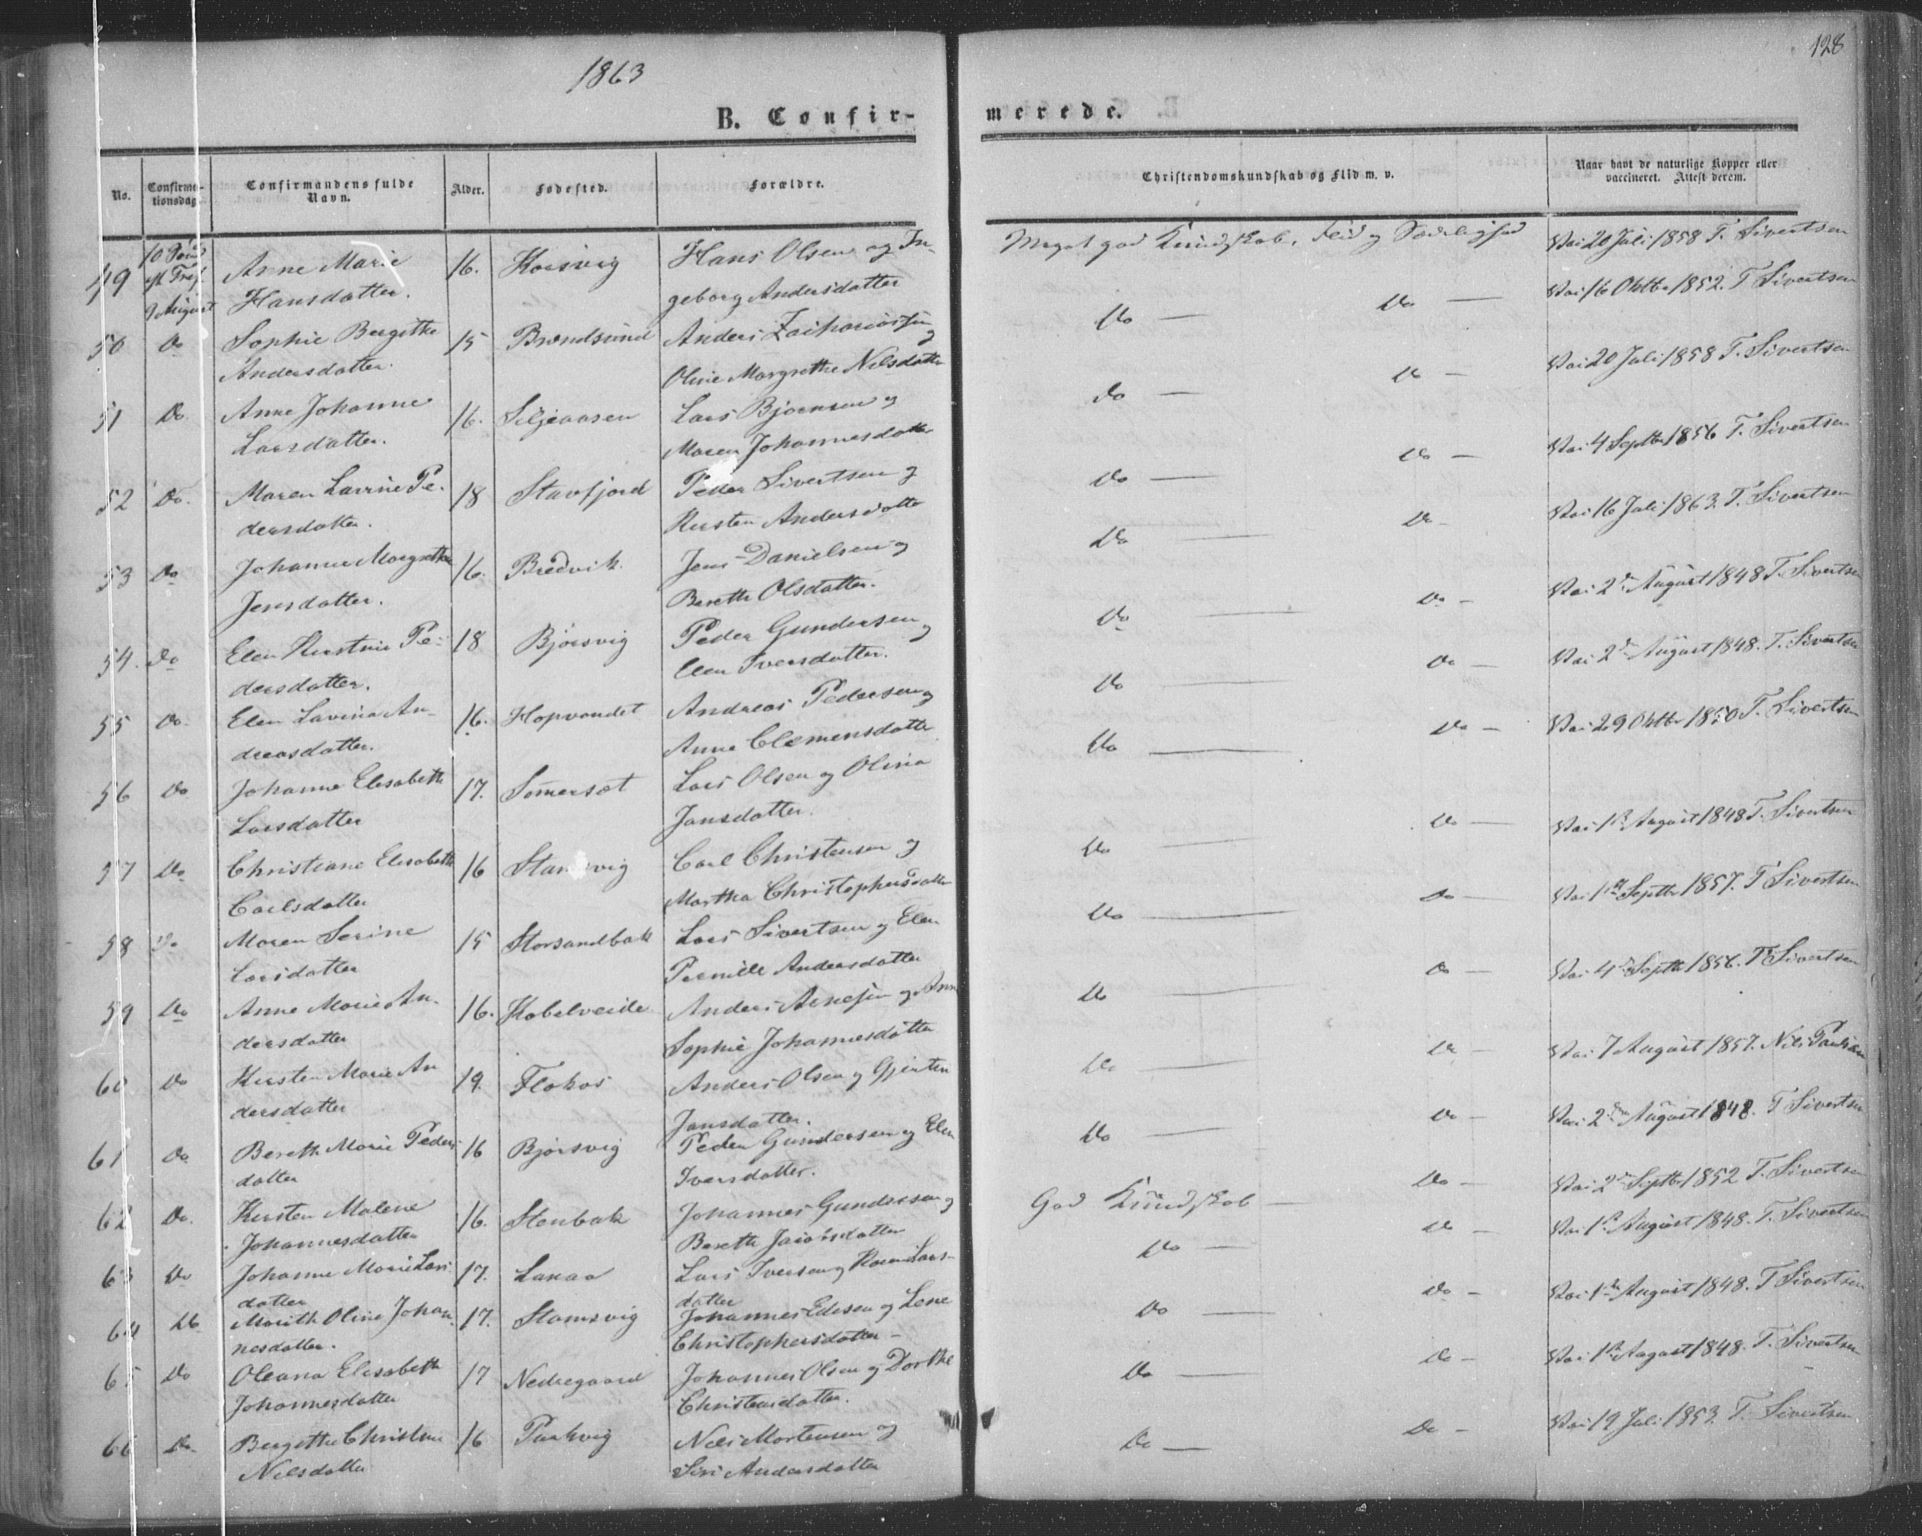 128
1863
B. Confir- merede.
No. Confirmationsdag. Confirmandens fulde Navn. Alder. Fødested. Forældre. Christendomskundskab og Flid m. v. Naar havt de naturlige Kopper eller vaccineret. Attest derom.
49 10 Sønd eft Tref 9 August Anne Marie 16. Korsvig Hans Olsen og In- Meget god Kundskab, Flid og Sædelighed Vac 20 Juli 1858 T. Sivertsen
Hansdatter. geborg Andersdatter
50 Do Sophie Bergitte 15 Brændsund Anders Zachariassen og Do — Do — Vac 16 Oktbr 1852. T Sivertsen
Andersdatter. Oline Margrethe Nilsdatter
51 Do. Anne Johanne 16. Siljeaasen Lars Bjørnsen og Do — Do — Vac 20 Juli 1858 T. Sivertsen
Larsdatter. Maren Johannesdatter
52 Do. Maren Lavine Pe- 18 Stavfjord Peder Sivertsen og Do — Do — Vac 4 Septbr 1856 T. Sivertsen
dersdatter. Kirsten Andersdatter
53 Do Johanne Margrethe 16. Bredvik Jens Danielsen og Do — Do — Vac 16 Juli 1863. T. Sivertsen
Jensdatter. Bereth Olsdatter.
54. Do Elen Kirstine Pe- 18 Bjørsvig Peder Gundersen og Do — Do — Vac 2 August 1848 T. Sivertsen
dersdatter. Elen Iversdatter.
55 Do. Elen Lavina An- 16. Hopvandet Andreas Pedersen og Do — Do — Vac 2 August 1848. T. Sivertsen
dreasdatter. Anne Clemensdatter
56 Do Johanna Elisabeth 17. Somerset Lars Olsen og Olina Do — Do — Vac 29 Oktbr 1850 T. Sivertsen
Larsdatter Jansdatter.
57 Do Christiane Elisabeth 16 Carl Christensen og Do — Do — Vac 1 August 1848 T. Sivertsen
Carlsdatter Martha Christophersdatter
58 Do Maren Serine 15 Storsandbak Lars Sivertsen og Elen Do — Do — Vac 1 Septbr 1857. T Sivertsen
Larsdatter Pernille Andersdatter
59 Do Anne Marie An- 16. Kobelveide Anders Arnesen og Ann Do — Do — Vac 4 Septbr 1856. T Sivertsen
dersdatter Sophie Johannesdatter
60 Do Kirsten Marie An 19. Flokos Anders Olsen og Gjerten Do — Do — Vac 7 August 1857. Nils Paulsen
dersdatter Jansdatter.
61 Do Bereth Marie Peders 16 Bjørsvig Peder Gundersen og Elen Do — Do — Vac 2 August 1848. T Sivertsen
datter Iversdatter.
62 Do. Kirsten Malene 16. Stenbak Johannes Gundersen og God Kundskab — Do — Vac 2 Septbr 1852 T. Sivertsen
Johannesdatter Bereth Jacobsdatter
63 Do Johanne Marie Lars 17. Lakaa Lars Iversen og Karen Lars- Do — Do — Vac 1 August 1848. T. Sivertsen
datter datter
64 Do Marith Oline Johan 17. Stamsvig Johannes Edisen og Lene Do — Do — Vac 1 August 1848. T Sivertsen
nesdatter. Christophersdatter —
65 Do Oleana Elisabeth 17 Nedregaard Johannes Olsen og Dorthe Do — Do — Vac 1 August 1848. T. Sivertsen
Johannesdatter Christensdatter.
66 Do Bergitte Christine 16 Nils Mortensen og Do — Do — Vac 19 Juli 1853. T. Sivertsen
Nilsdatter Siri Andersdatter